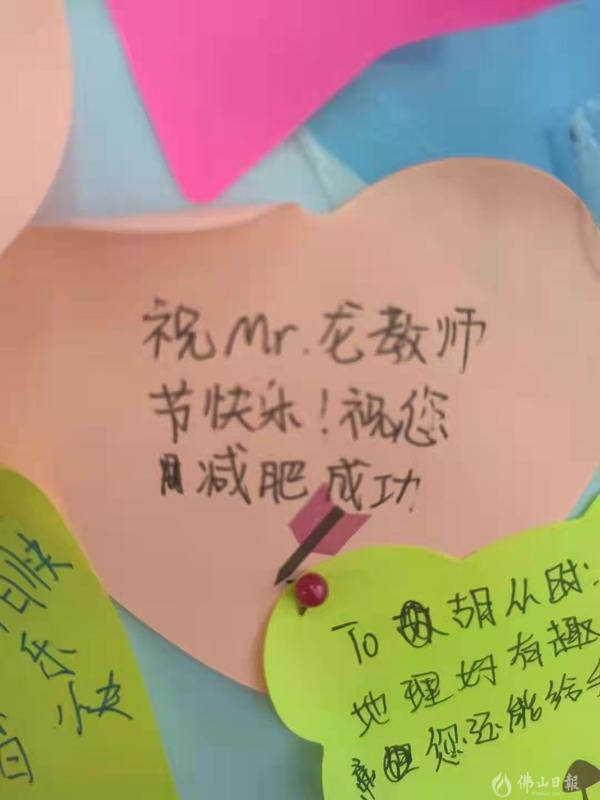 祝Mr.龙教师
节快乐！祝您
减肥成功
To 胡从时：
地理好有趣
您还能给
快
乐
快
佛山日報